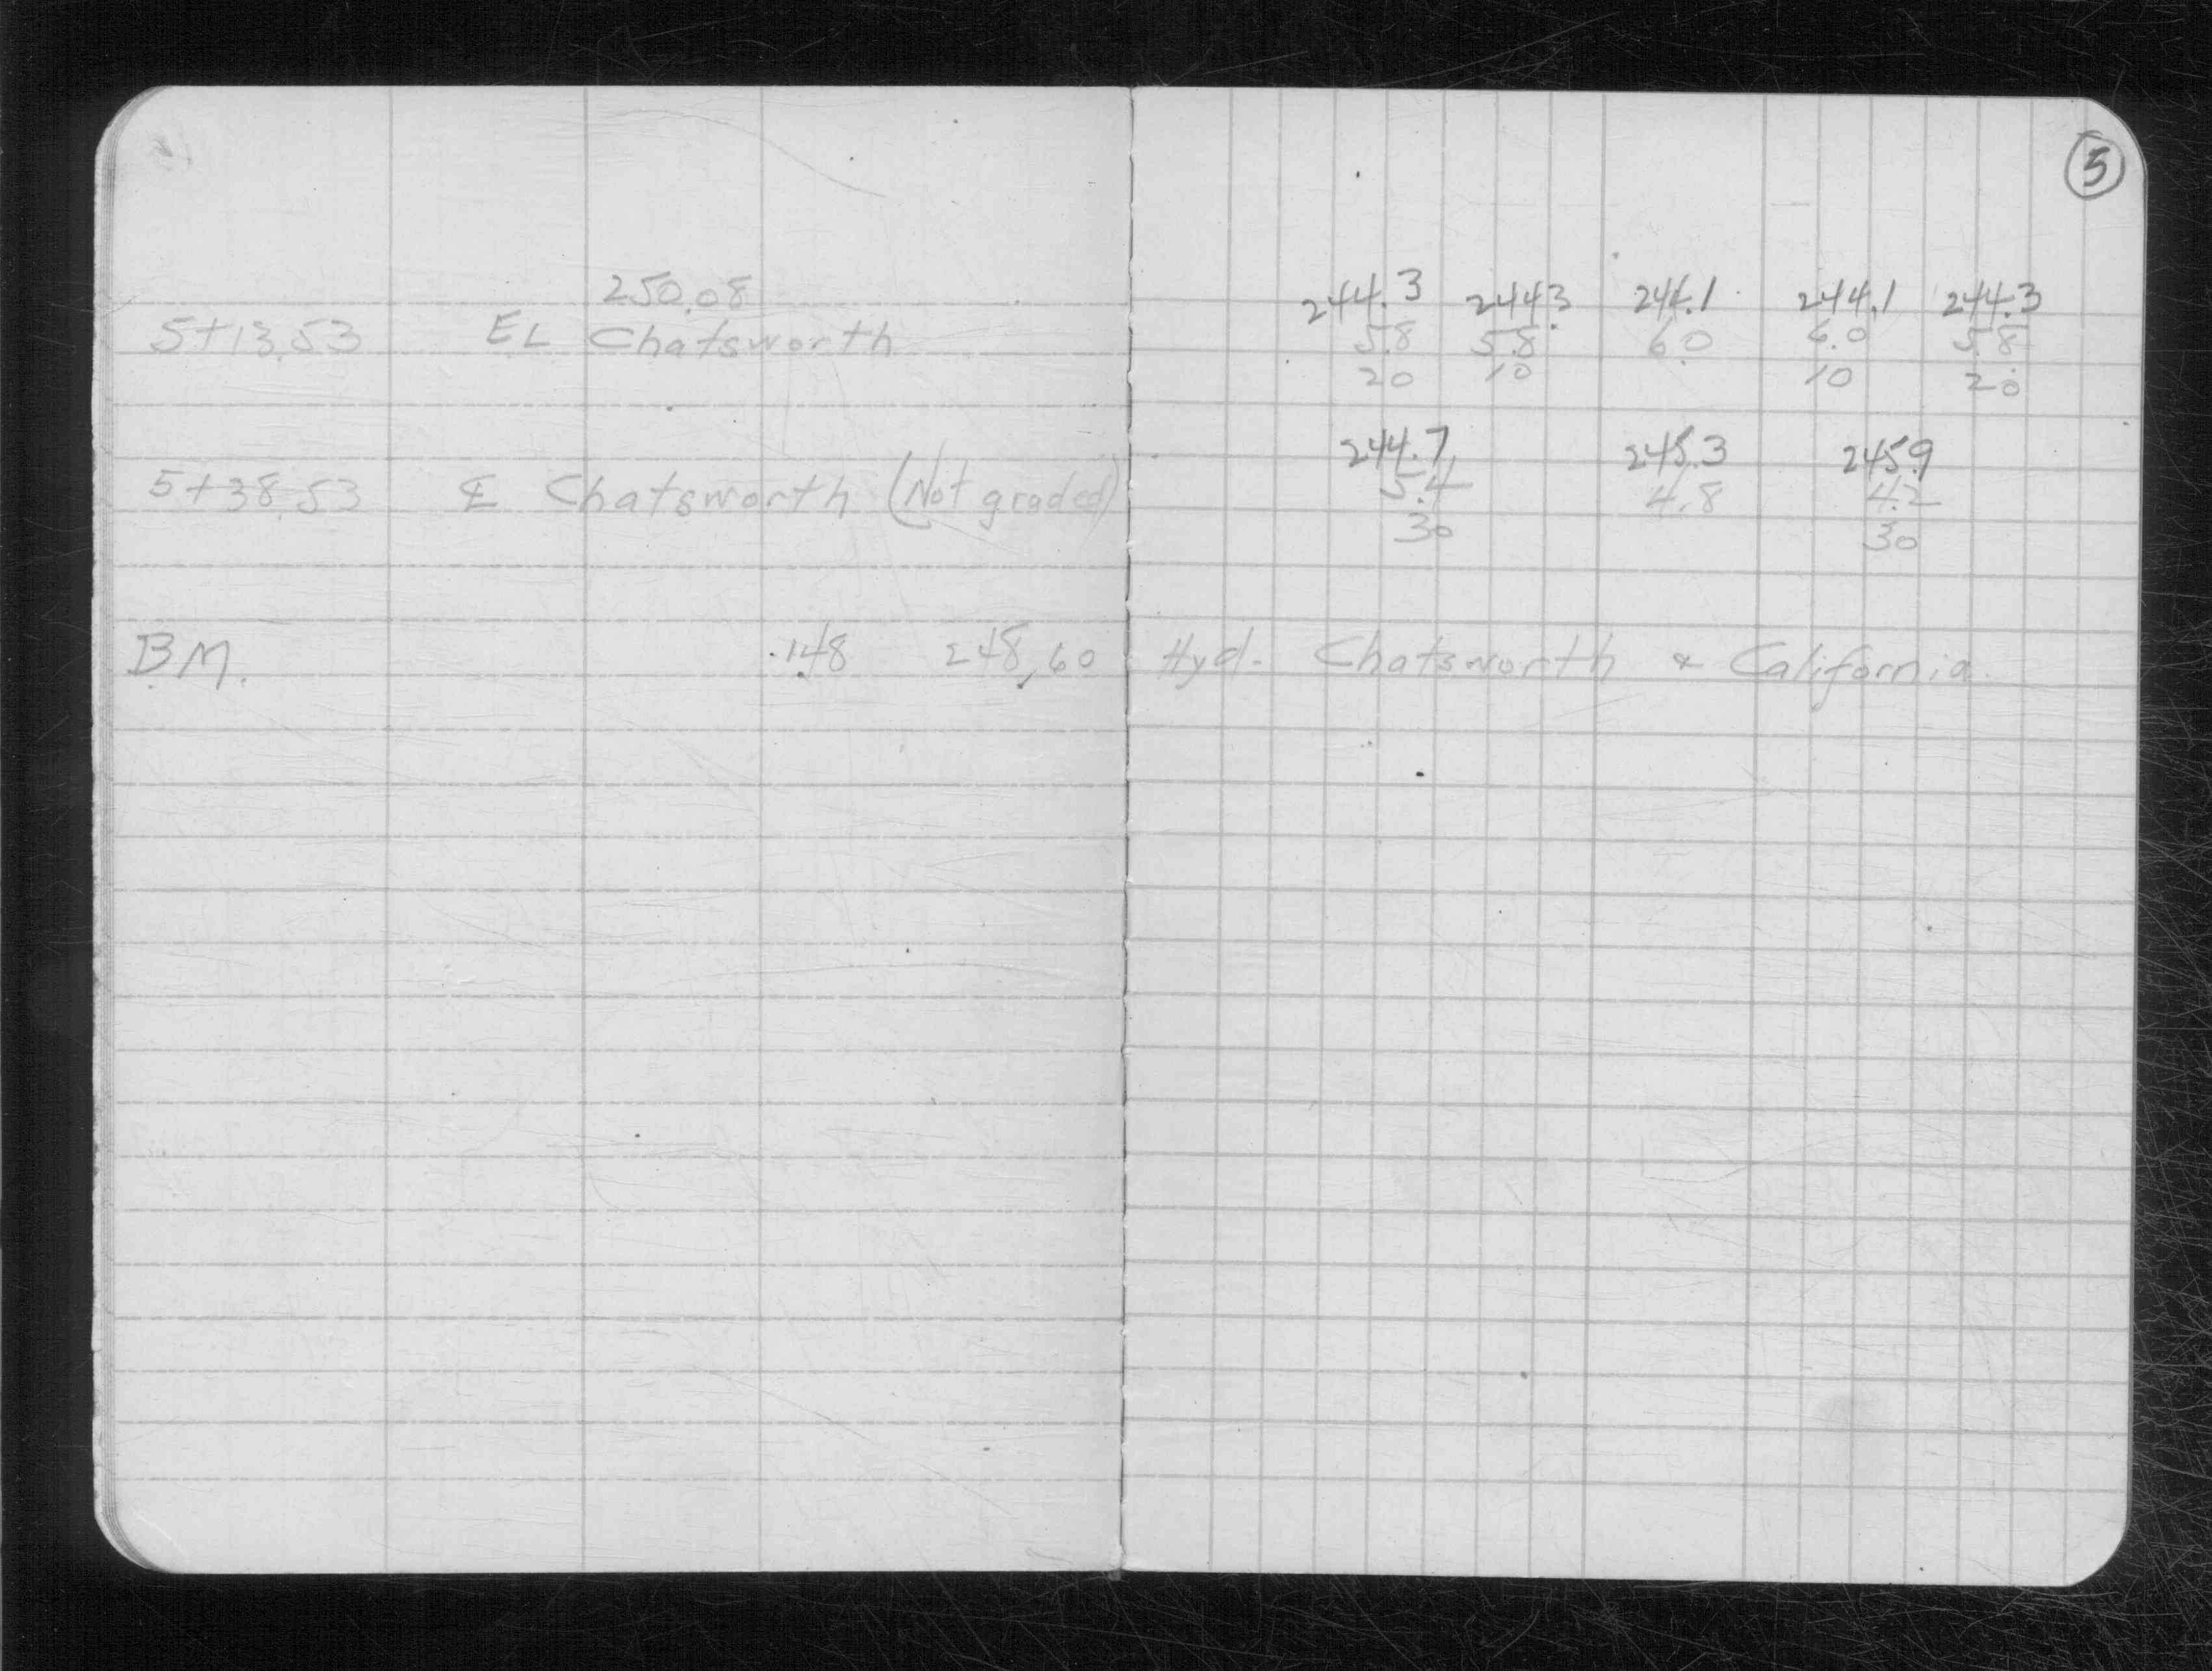 5
250.08
244.3 244.3 244.1 244.1 244.3
5+13.53 EL Chatsworth 5.8 5.8 6.0 6.0 5.8
20 10 10 20
244.7 245.3 245.9
5+38.53 ℄ Chatsworth (Not graded) 5.4 4.8 4.2
30 30
B.M. 1.48 248.60 Hyd. Chatsworth & California.